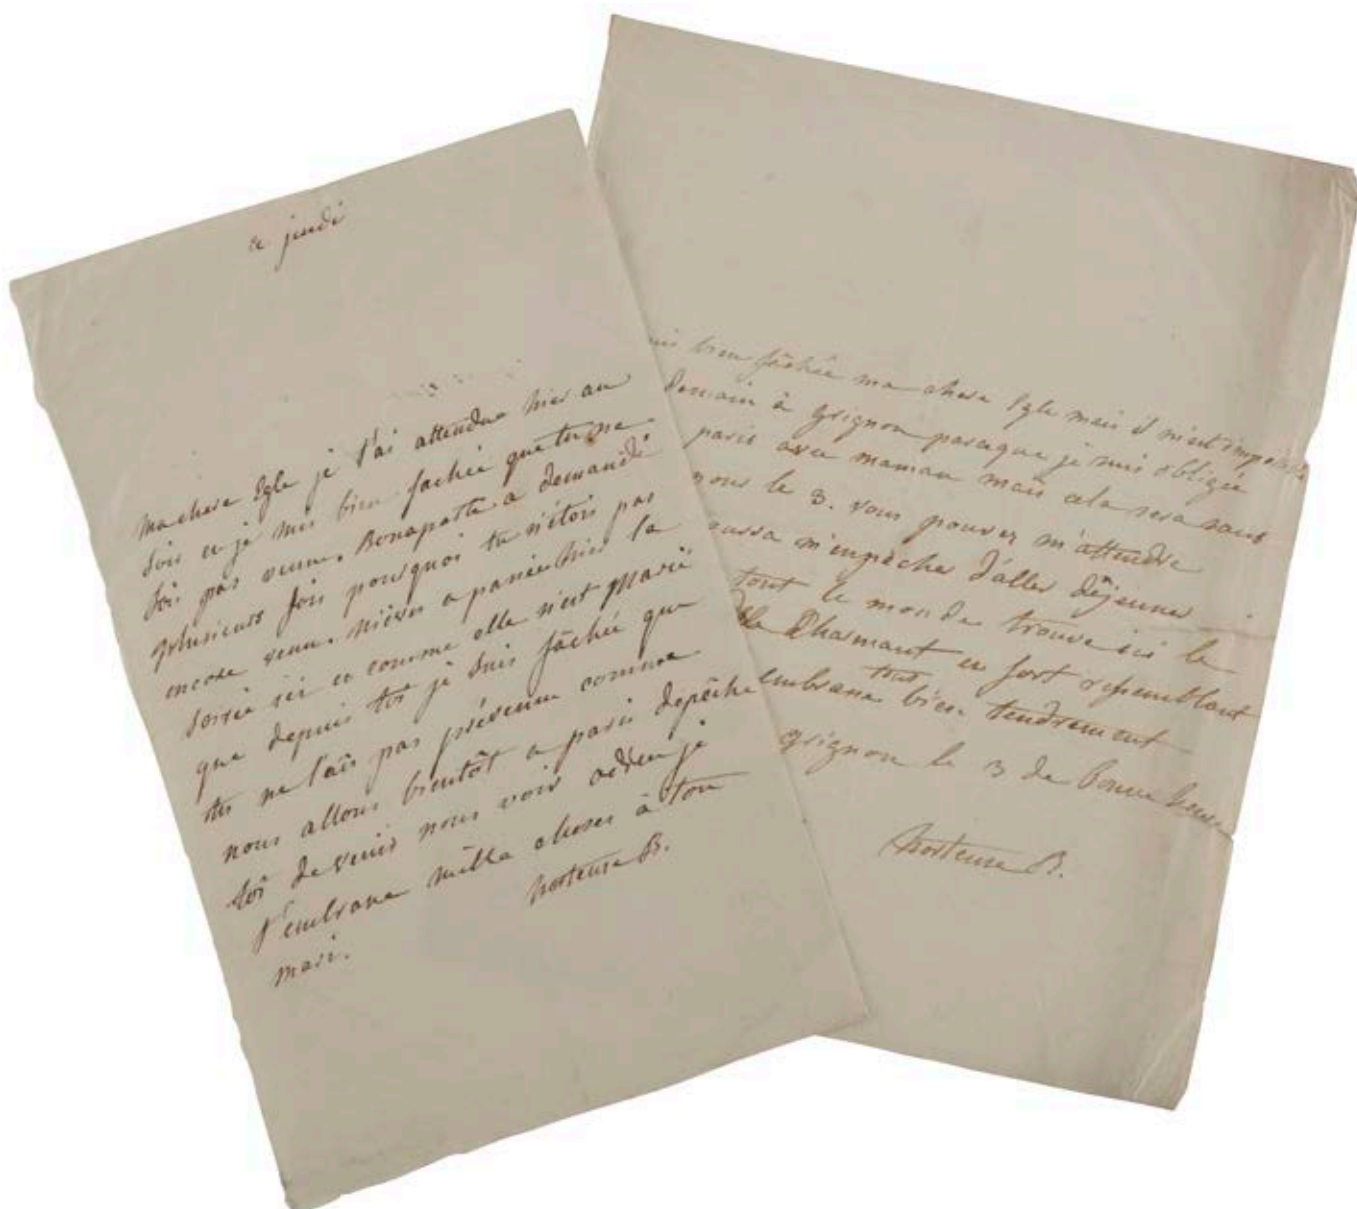 ce jeudi
ma chere Egle je t'ai attendue hier au
soir et je suis bien fachée que tu ne
sois pas venue. Bonaparte a demandé
plusieurs fois pourquoi tu n'étois pas
encore venue. nièves a passée hier la
soirée ici et comme elle n'est Mariée
que depuis toi je suis fâchée que
tu ne l'ais pas prévenue comme
nous allons bientôt a paris depêche
toi de venir nous voir adieu je
t'embrasse mille choses à ton
mari.
hortense B.
suis bien fâchée ma chere Egle mais il m'est impossible
demain à grignon parceque je suis obligée
paris avec maman mais cela sera sans
pour le 3. vous pouvez m'attendre
pourra m'empècher d'aller dèjeuner
tout le monde trouve ici le
Charmant et fort ressemblant
embrasse tout bien tendrement
grignon le 3 de bonne heure
hortense B.